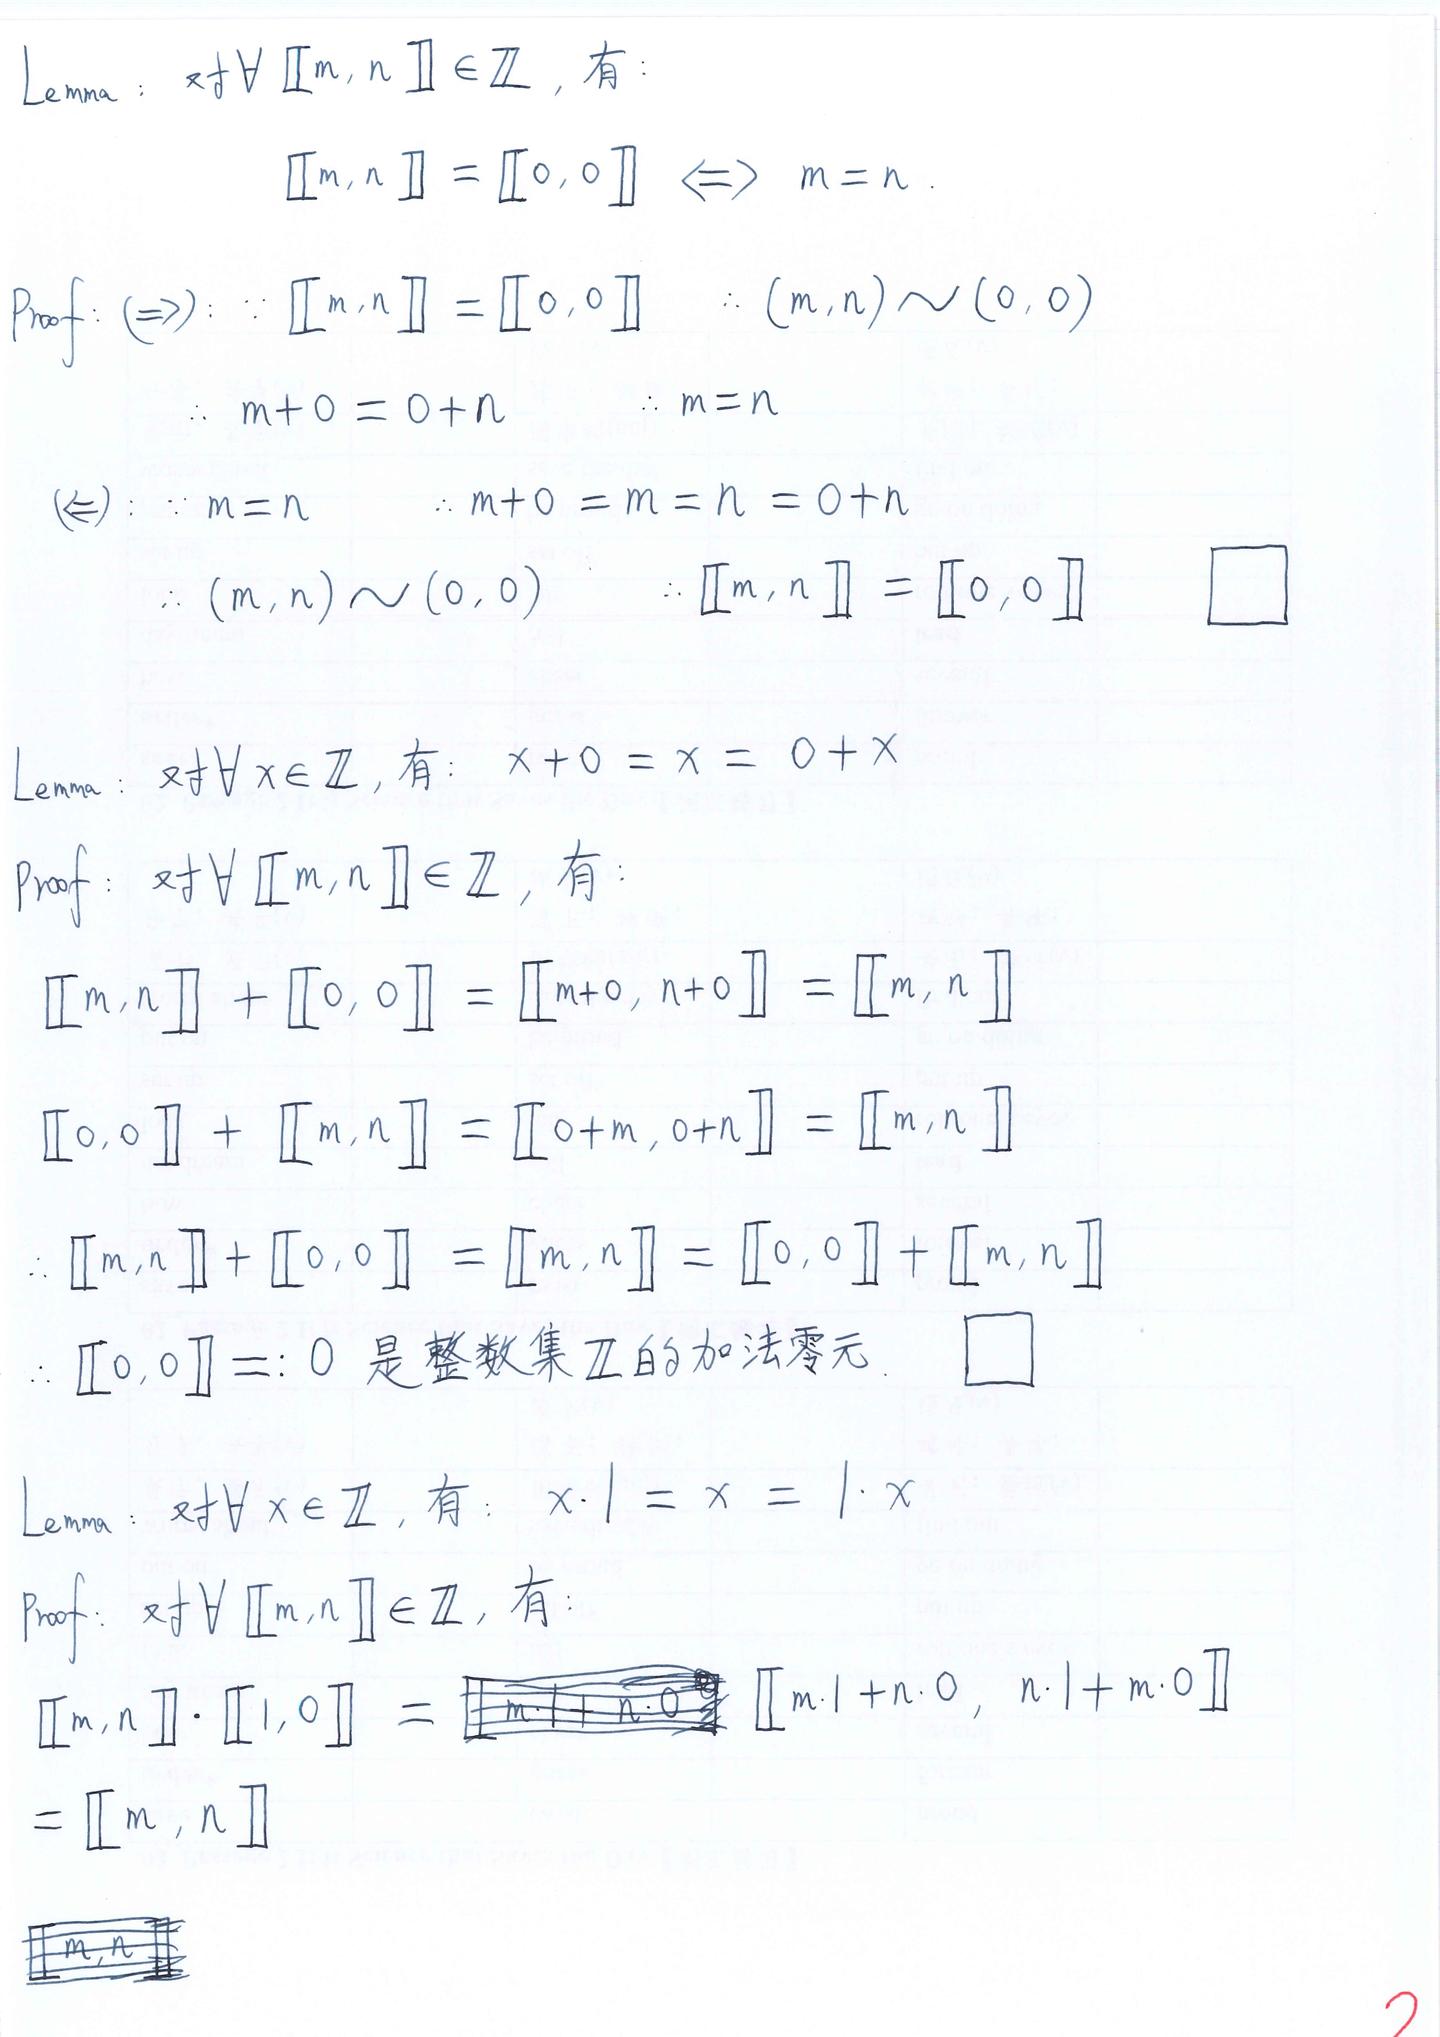 Lemma: 对∀ ⟦m, n⟧ ∈ ℤ, 有:
⟦m, n⟧ = ⟦0, 0⟧ ⇔ m = n.
Proof: (⇒): ∵ ⟦m, n⟧ = ⟦0, 0⟧ ∴ (m, n) ~ (0, 0)
∴ m+0 = 0+n ∴ m = n
(⇐): ∵ m = n ∴ m+0 = m = n = 0+n
∴ (m, n) ~ (0, 0) ∴ ⟦m, n⟧ = ⟦0, 0⟧ □
Lemma: 对∀ x ∈ ℤ, 有: x+0 = x = 0+x
Proof: 对∀ ⟦m, n⟧ ∈ ℤ, 有:
⟦m, n⟧ + ⟦0, 0⟧ = ⟦m+0, n+0⟧ = ⟦m, n⟧
⟦0, 0⟧ + ⟦m, n⟧ = ⟦0+m, 0+n⟧ = ⟦m, n⟧
∴ ⟦m, n⟧ + ⟦0, 0⟧ = ⟦m, n⟧ = ⟦0, 0⟧ + ⟦m, n⟧
∴ ⟦0, 0⟧ =: 0 是整数集ℤ的加法零元. □
Lemma: 对∀ x ∈ ℤ, 有: x·1 = x = 1·x
Proof: 对∀ ⟦m, n⟧ ∈ ℤ, 有:
⟦m, n⟧·⟦1, 0⟧ = ⟦m·1+n·0, n·1+m·0⟧
= ⟦m, n⟧